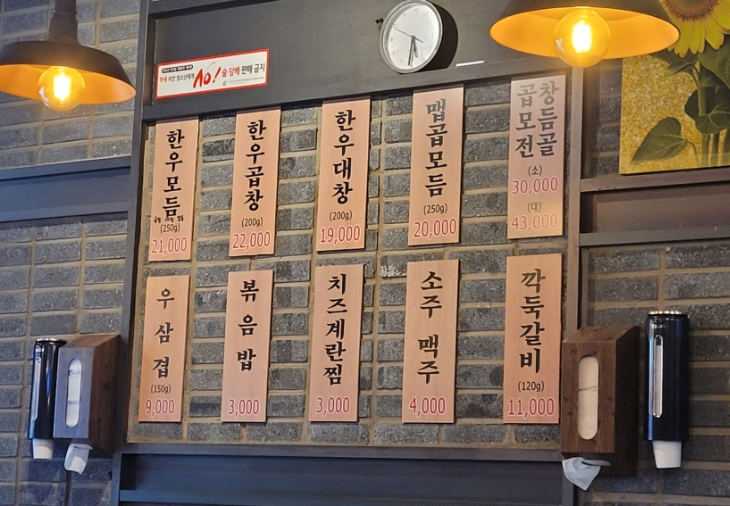 19세 미만 청소년에게 NO! 술·담배 판매 금지
한우모듬
(250g)
21,000
한우곱창
(200g)
22,000
한우대창
(200g)
19,000
맵곱모듬
(250g)
20,000
곱창
모듬
전골
(소)
30,000
(대)
43,000
우삼겹
(150g)
9,000
볶음밥
3,000
치즈계란찜
3,000
소주 맥주
4,000
깍둑갈비
(120g)
11,000